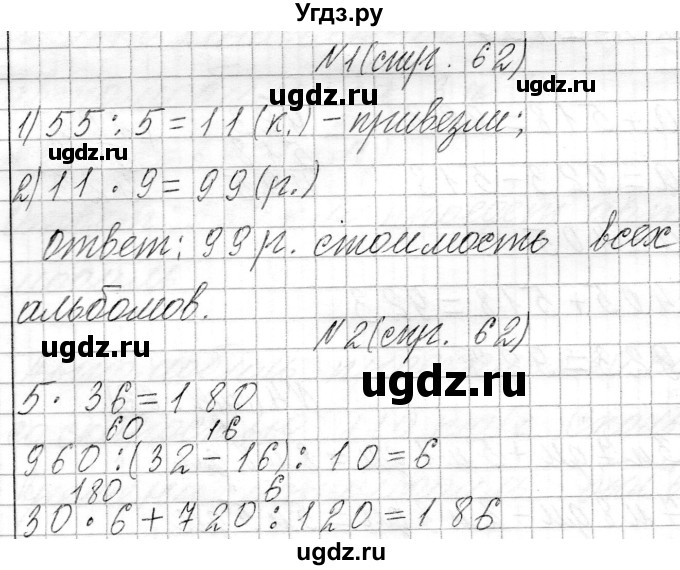 Угдз.ру
№1(стр. 62)
1) 55 : 5 = 11 (к.) – привезли;
ugdz.ru
ugdz.ru
2) 11 · 9 = 99 (р.)
ответ: 99 р. стоимость всех
альбомов.
№2(стр. 62)
ugdz.ru
ugdz.ru
5 · 36 = 180
60 16
960 : (32 – 16) : 10 = 6
180 6
30 · 6 + 720 : 120 = 186
ugdz.ru
ugdz.ru